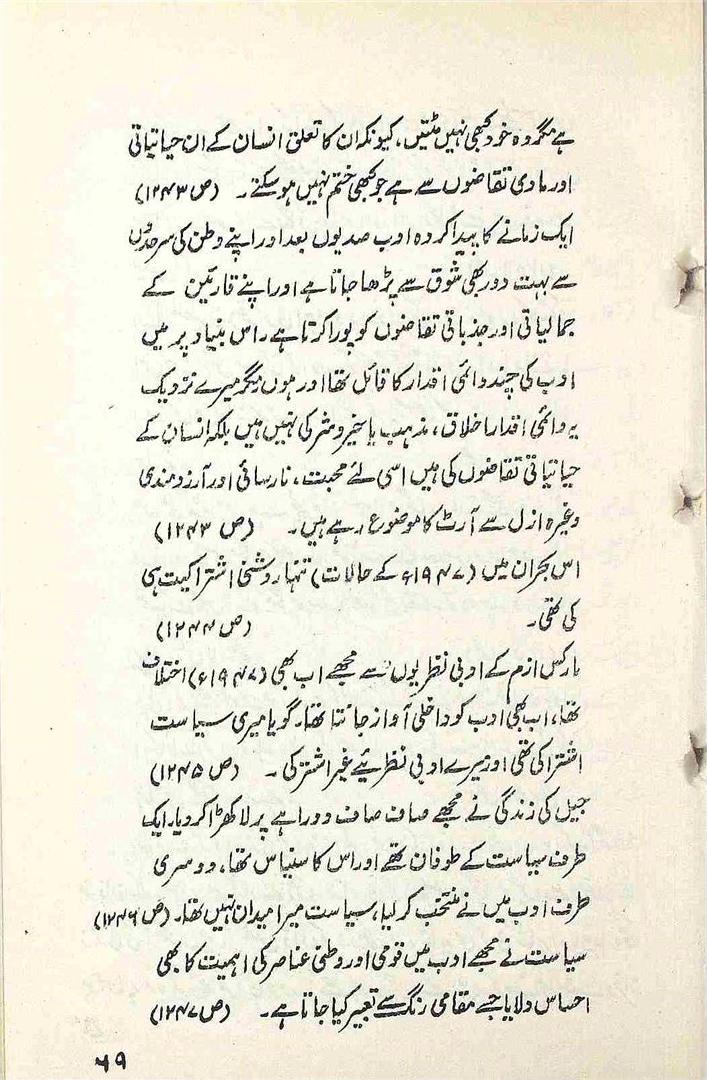 ہے مگر وہ خود کبھی نہیں مٹتیں، کیونکہ ان کا تعلق انسان کے ان حیاتیاتی
اور مادی تقاضوں سے ہے جو کبھی ختم نہیں ہو سکتے۔ (ص ۱۲۴۳)
ایک زمانے کا پیدا کردہ ادب صدیوں بعد اور اپنے وطن کی سرحدوں
سے بہت دور بھی شوق سے پڑھا جاتا ہے اور اپنے قارئین کے
جمالیاتی اور جذباتی تقاضوں کو پورا کرتا ہے، اس بنیاد پر میں
ادب کی چند دائمی اقدار کا قائل تھا اور ہوں مگر میرے نزدیک
یہ دائمی اقدار اخلاق، مذہب یا خیر و شر کی نہیں ہیں بلکہ انسان کے
حیاتیاتی تقاضوں کی ہیں اسی لئے محبت، نارسائی اور آرزومندی
وغیرہ ازل سے آرٹ کا موضوع رہے ہیں۔ (ص ۱۲۴۳)
اس بحران میں (۱۹۴۷ء کے حالات) تنہا روشنی اشتراکیت ہی
کی تھی۔ (ص ۱۲۴۴)
مارکس ازم کے ادبی نظریوں سے مجھے اب بھی (۱۹۴۷ء) اختلاف
تھا، اب بھی ادب کو داخلی آواز جانتا تھا۔ گویا میری سیاست
اشتراکی تھی اور میرے ادبی نظریئے غیر اشترکی۔ (ص ۱۲۴۵)
جیل کی زندگی نے مجھے صاف صاف دوراہے پر لا کھڑا کر دیا۔ ایک
طرف سیاست کے طوفان تھے اور اس کا سنیاس تھا، دوسری
طرف ادب میں نے منتخب کر لیا، سیاست میرا میدان نہیں تھا۔ (ص ۱۲۴۶)
سیاست نے مجھے ادب میں قومی اور وطنی عناصر کی اہمیت کا بھی
احساس دلایا جسے مقامی رنگ سے تعبیر کیا جاتا ہے۔ (ص ۱۲۴۷)
۶۹